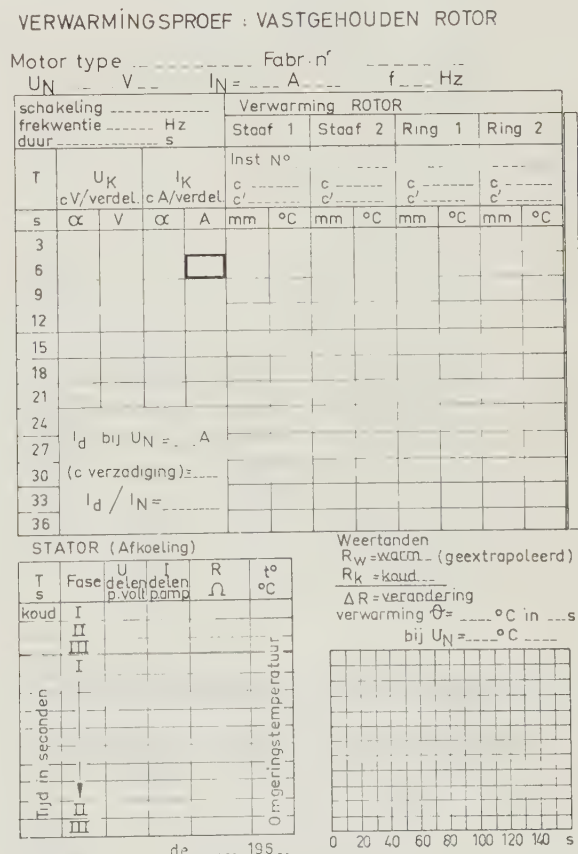 VERWARMINGSPROEF : VASTGEHOUDEN ROTOR
Motor type Fabr. nr
UN V IN = A f Hz
schakeling
frekwentie Hz
duur s
Verwarming ROTOR
Staaf 1 Staaf 2 Ring 1 Ring 2
Inst No
T UK IK
c V/verdel. c A/verdel.
c c c c
c' c' c' c'
s α V α A mm °C mm °C mm °C mm °C
3
6
9
12
15
18
21
24
27
30
33
36
Id bij UN = A
(c verzadiging)=
Id / IN =
STATOR (Afkoeling)
T s Fase U delen p.volt I delen p.amp R Ω t° °C
koud I
II
III
I
II
III
Tijd in seconden
Omgeringstemperatuur
Weertanden
RW = warm (geextrapoleerd)
Rk = koud
ΔR = verandering
verwarming θ = °C in s
bij UN = °C
0 20 40 60 80 100 120 140 s
de 195